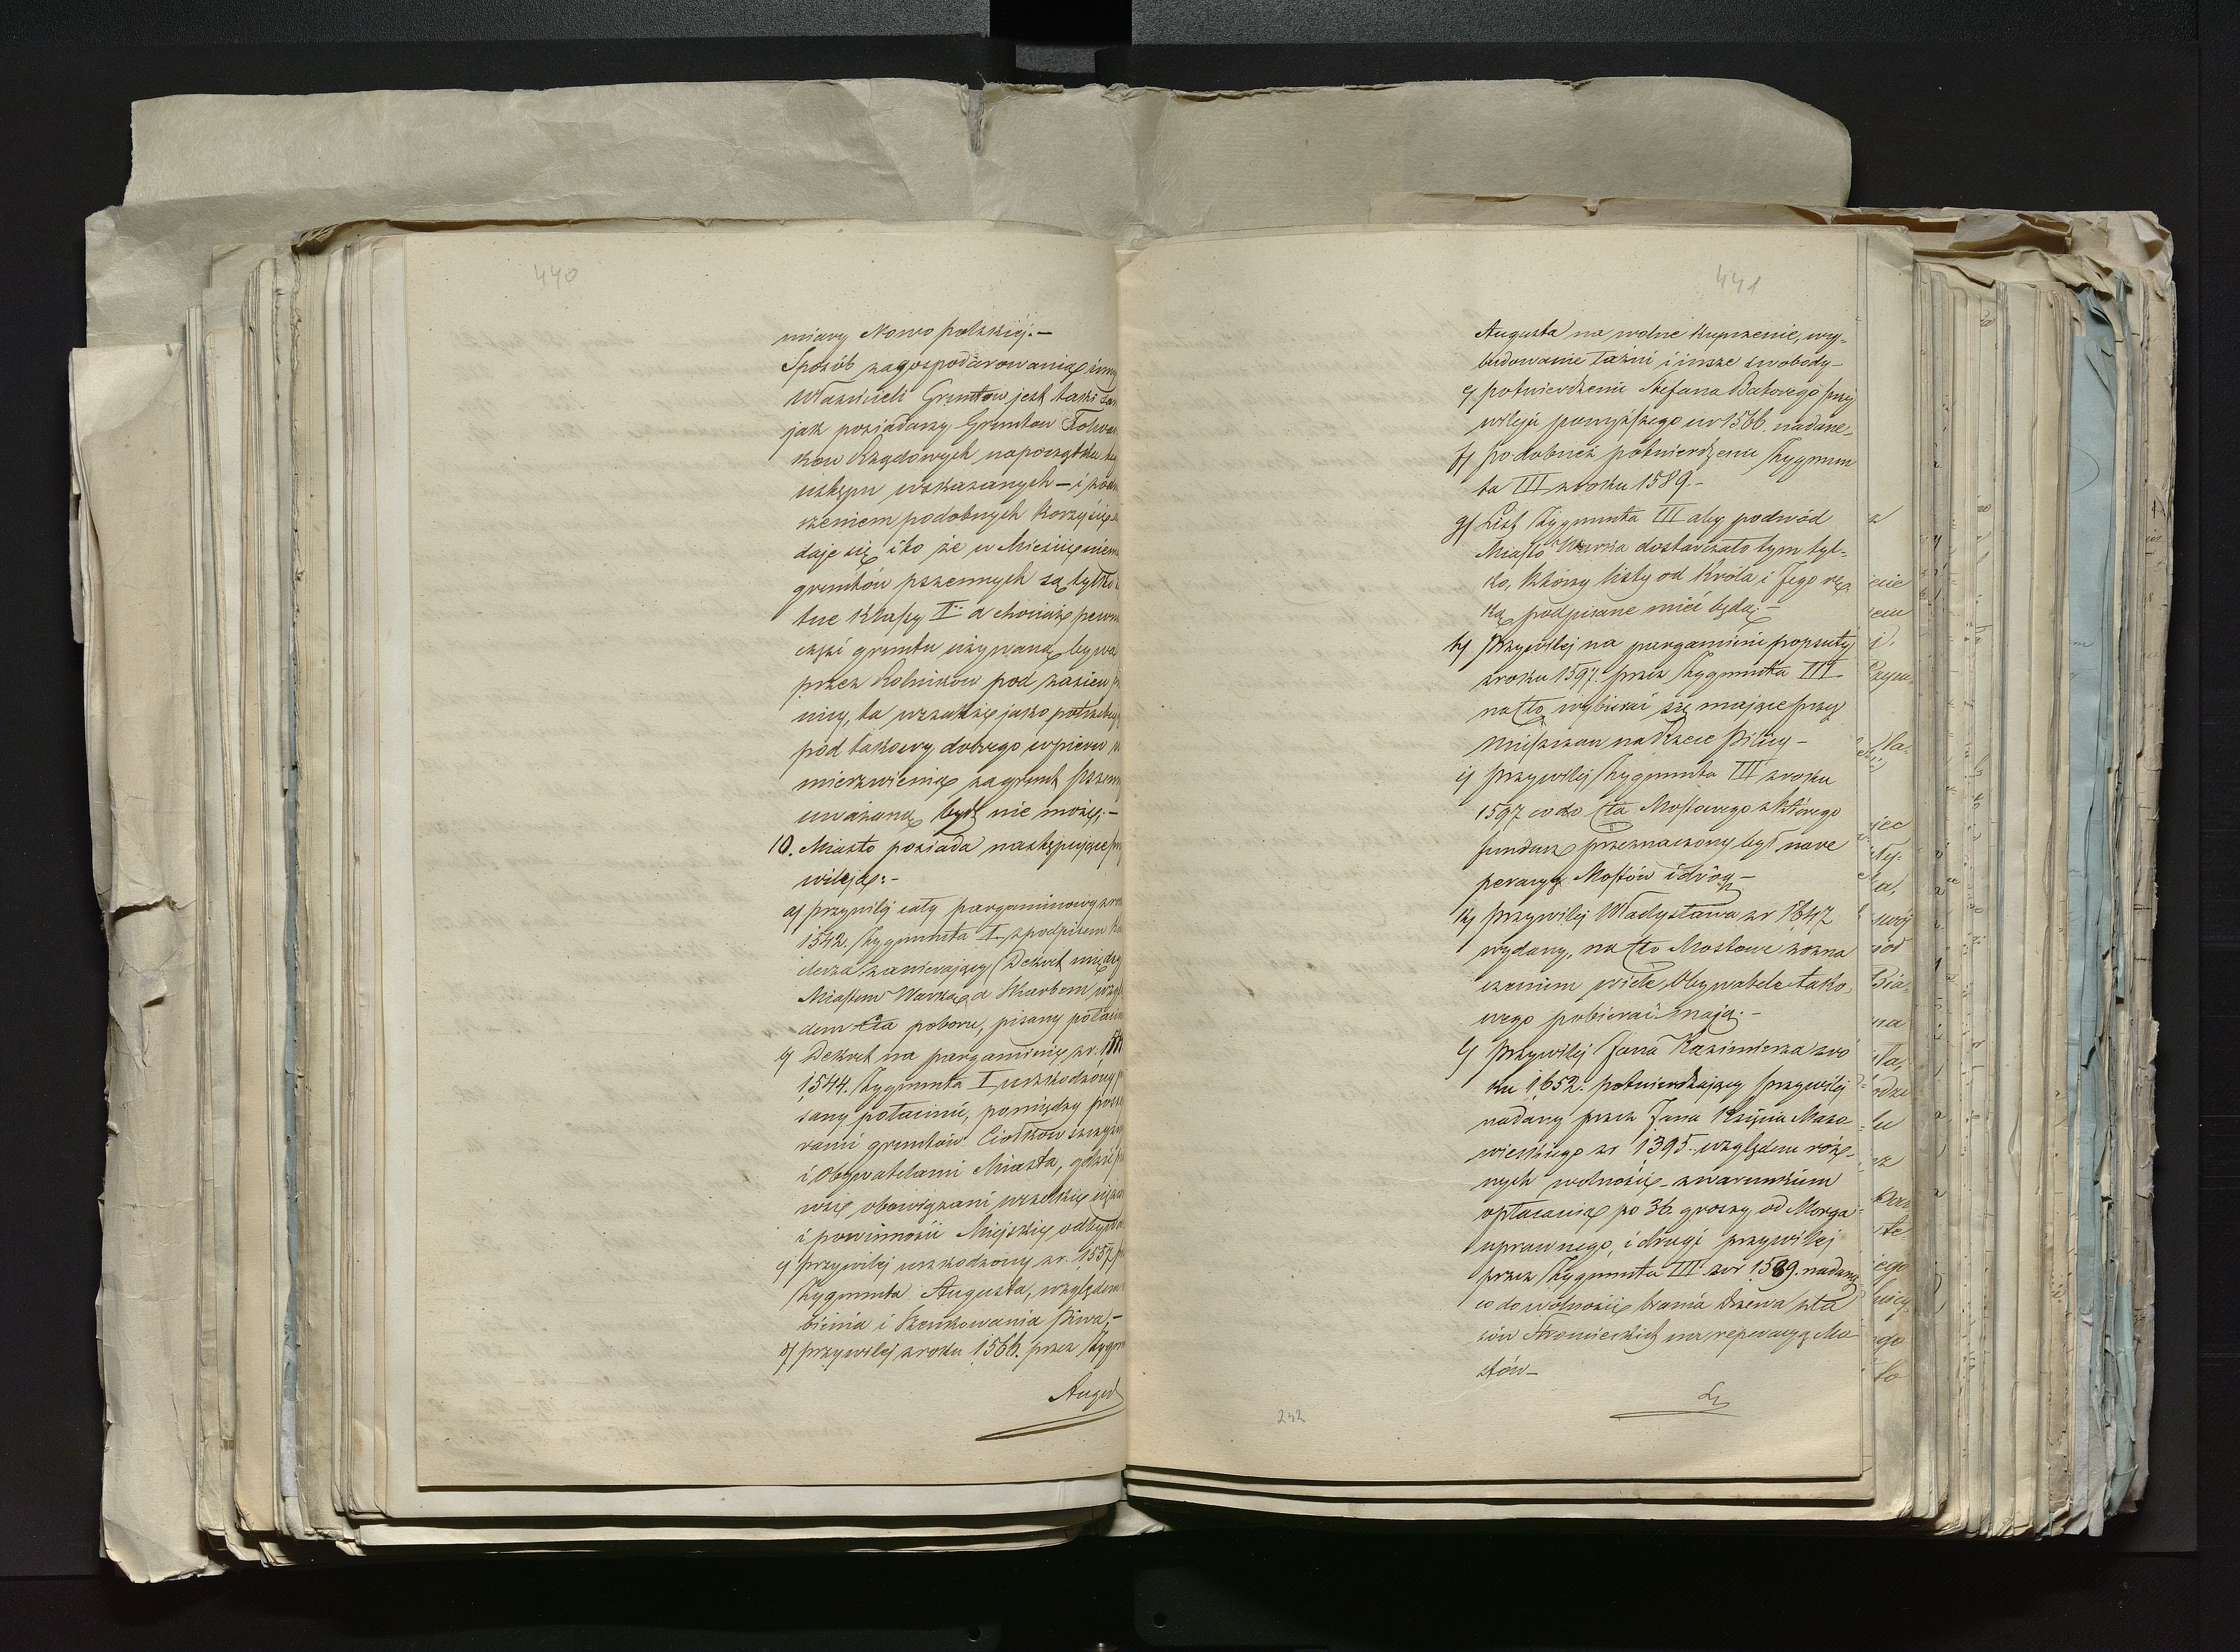 440
miary Nowo polskiéj.—
Sposób zagospodarowania inny
Właścicieli Gruntow jest taki sam
jak posiadaczy Gruntow Folwar
kow Rządowych napoczątku
ustępu wskazanych — i
rzeniem podobnych korzyści
daje się i to że w Mieście niema
gruntów pszennych są tylko
tnie Klassy II a chociaż pewna
część gruntu używana bywa
przez Rolnikow pod zasiew
nicy, ta wszakże jako potrzebuje
pod takowy dobrego wpierw
mierzwienia za grunt pszenny
uważaną być nie może.—
10. Miasto posiada następujące
wileje:—
a) przywilej cały pargaminowy z
1542. Zygmunta I. z podpisem
clerza zawierający Dekret między
Miastem Warką a Skarbem wzglę
dem Cła poboru, pisany połacin
b) Dekret na pargaminie z r.
1544. Zygmunta I uszkodzony
sany połacinie, pomiędzy posse
rami gruntów Ciołkow
i Obywatelami Miasta, gdzie
wsze obowiązani wszelkie
i powinności Miejskie odbywać
c) przywilej uszkodzony z r. 1557
Zygmunta Augusta, względem
bienia i Szenkowania Piwa,—
d) przywilej z roku 1566. przez Zygm
August
441
Augusta na wolne kupczenie, wy=
budowanie łaźni i insze swobody—
e) potwierdzenie Stefana Batorego przy
wileju powyższego w r 1566. nadane.
f) podobnież potwierdzenie Zygmun
ta III z roku 1589.—
g) List Zygmunta III aby podwód
Miasto Warka dostarczało tym tyl=
ko, którzy listy od Króla i Jego rę
ką podpisane mieć będą:—
h) przywilej na pargaminie popsuty
z roku 1597. przez Zygmunta III.
na cło wybierać się mające przy
Mieszczan na Rzece Pilicy—
i) przywilej Zygmunta III z roku
1597 co do cła Mostowego z którego
fundusz przeznaczony był na re
peracyą Mostów i dróg—
k) przywilej Władysława z r 1647
wydany, na cło Mostowe z ozna
czeniem wiele Obywatele tako,
wego pobierać mają.—
l) przywilej Jana Kazimierza z ro
ku 1652. potwierdzający przywilej
nadany przez Jana Xsięcia Mazo
wieckiego z r 1395. względem róż-
nych wolności— z warunkiem
opłacania po 36 groszy od Morga
uprawnego, i drugi przywilej
przez Zygmunta III z r 1589. nadany
co do wolności brania drzewa z la
sów Stromieckich na reperacyą Mo
stów—
242